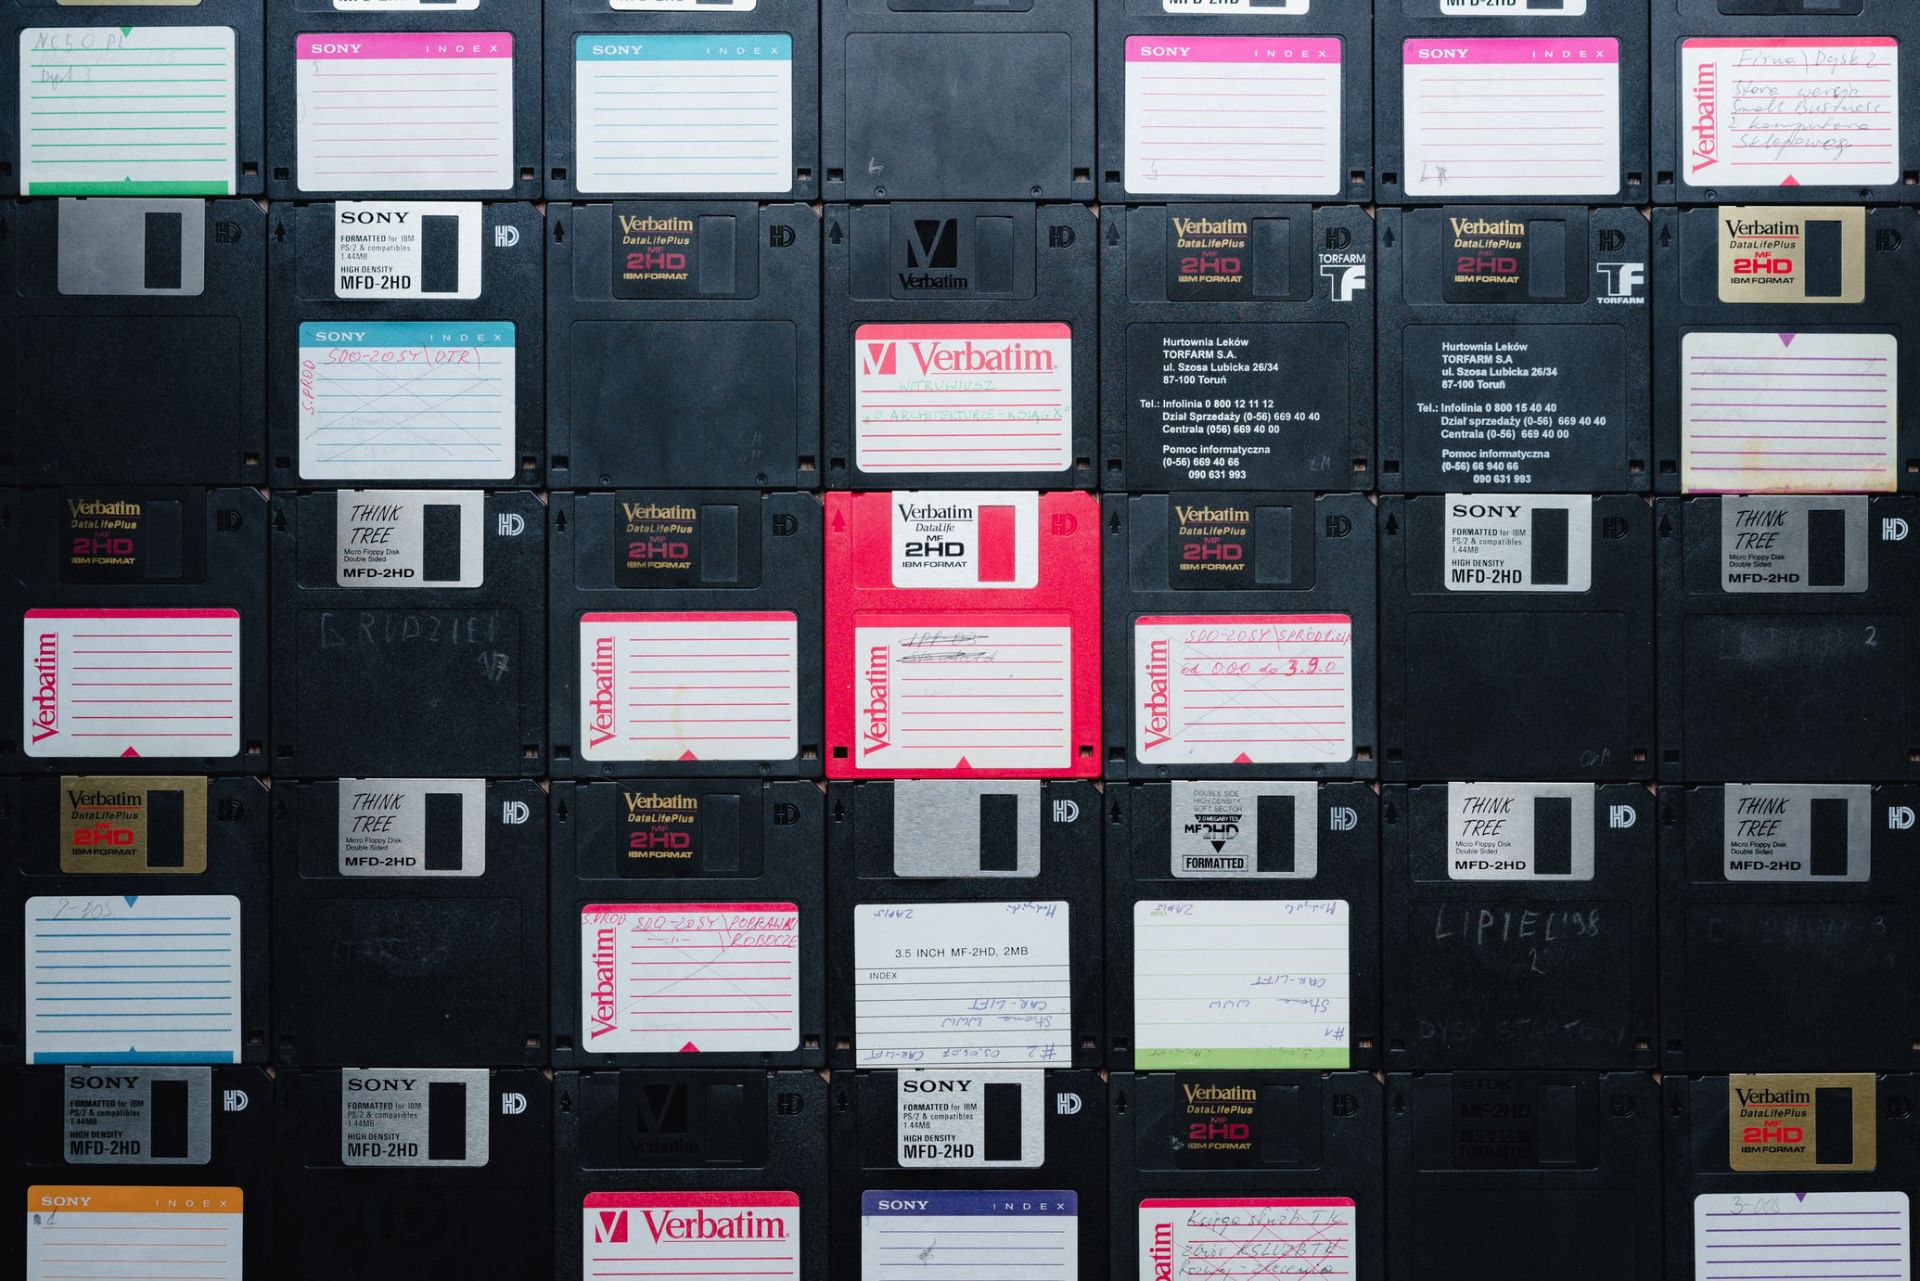 MFD-2HD
MFD-2HD
MFD-2HD
MFD-2HD
SONY INDEX
SONY INDEX
SONY INDEX
SONY INDEX
Verbatim
Firma \ Dysk 2
Stara wersja
Small Business
z komputera
HD
SONY
FORMATTED for IBM
PS/2 & compatibles
1.44MB
HIGH DENSITY
MFD-2HD
HD
SONY INDEX
S.PROD
SDO-20SY\DTR\
Verbatim
DataLifePlus
MF
2HD
IBM FORMAT
HD
Verbatim
HD
Verbatim.
WITRUWIUSZ
"O ARCHITEKTURZE - KSIĄG X"
Verbatim
DataLifePlus
MF
2HD
IBM FORMAT
HD
TORFARM
TF
Hurtownia Leków
TORFARM S.A.
ul. Szosa Lubicka 26/34
87-100 Toruń
Tel.: Infolinia 0 800 12 11 12
Dział Sprzedaży (0-56) 669 40 40
Centrala (056) 669 40 00
Pomoc informatyczna
(0-56) 669 40 66
090 631 993
Verbatim
DataLifePlus
MF
2HD
IBM FORMAT
HD
TF
TORFARM
Hurtownia Leków
TORFARM S.A
ul. Szosa Lubicka 26/34
87-100 Toruń
Tel.: Infolinia 0 800 15 40 40
Dział sprzedaży (0-56) 669 40 40
Centrala (0-56) 669 40 00
Pomoc informatyczna
(0-56) 66 940 66
090 631 993
Verbatim
DataLifePlus
MF
2HD
IBM FORMAT
HD
Verbatim
DataLifePlus
MF
2HD
IBM FORMAT
HD
Verbatim
THINK
TREE
Micro Floppy Disk
Double Sided
MFD-2HD
HD
GRUDZIEŃ
Verbatim
DataLifePlus
MF
2HD
IBM FORMAT
HD
Verbatim
Verbatim
DataLife
MF
2HD
IBM FORMAT
HD
Verbatim
Standard
Verbatim
DataLifePlus
MF
2HD
IBM FORMAT
HD
Verbatim
SDO-20SY\SPROD1.zip
od 0.00 do 3.9.0
SONY
FORMATTED for IBM
PS/2 & compatibles
1.44MB
HIGH DENSITY
MFD-2HD
HD
THINK
TREE
Micro Floppy Disk
Double Sided
MFD-2HD
HD
2
Verbatim
DataLifePlus
MF
2HD
IBM FORMAT
HD
THINK
TREE
Micro Floppy Disk
Double Sided
MFD-2HD
HD
Verbatim
DataLifePlus
MF
2HD
IBM FORMAT
HD
Verbatim
S.PROD
SDO-20SY\POPRAWKI
—"— \ROBOCZE
HD
ZAPIS
3.5 INCH MF-2HD, 2MB
INDEX
CAR-LIFT
Strona WWW
#2 03.04.07 CAR-LIFT
DOUBLE SIDE
HIGH DENSITY
SOFT SECTOR
2.0 MEGABYTES
MF 2HD
FORMATTED
HD
INDEX
ZAPIS
CAR-LIFT
Strona WWW
#1
THINK
TREE
Micro Floppy Disk
Double Sided
MFD-2HD
HD
LIPIEC '98
2
THINK
TREE
Micro Floppy Disk
Double Sided
MFD-2HD
HD
3
SONY
FORMATTED for IBM
PS/2 & compatibles
1.44MB
HIGH DENSITY
MFD-2HD
HD
SONY INDEX
1
SONY
FORMATTED for IBM
PS/2 & compatibles
1.44MB
HIGH DENSITY
MFD-2HD
HD
Verbatim
HD
Verbatim.
SONY
FORMATTED for IBM
PS/2 & compatibles
1.44MB
HIGH DENSITY
MFD-2HD
HD
SONY INDEX
Verbatim
DataLifePlus
MF
2HD
IBM FORMAT
HD
Księga służb TK
zbiór KSLUZBTK
TDK
MF-2HD
MS-DOS
FORMATTED
HD
Verbatim
DataLifePlus
MF
2HD
IBM FORMAT
3-DOS